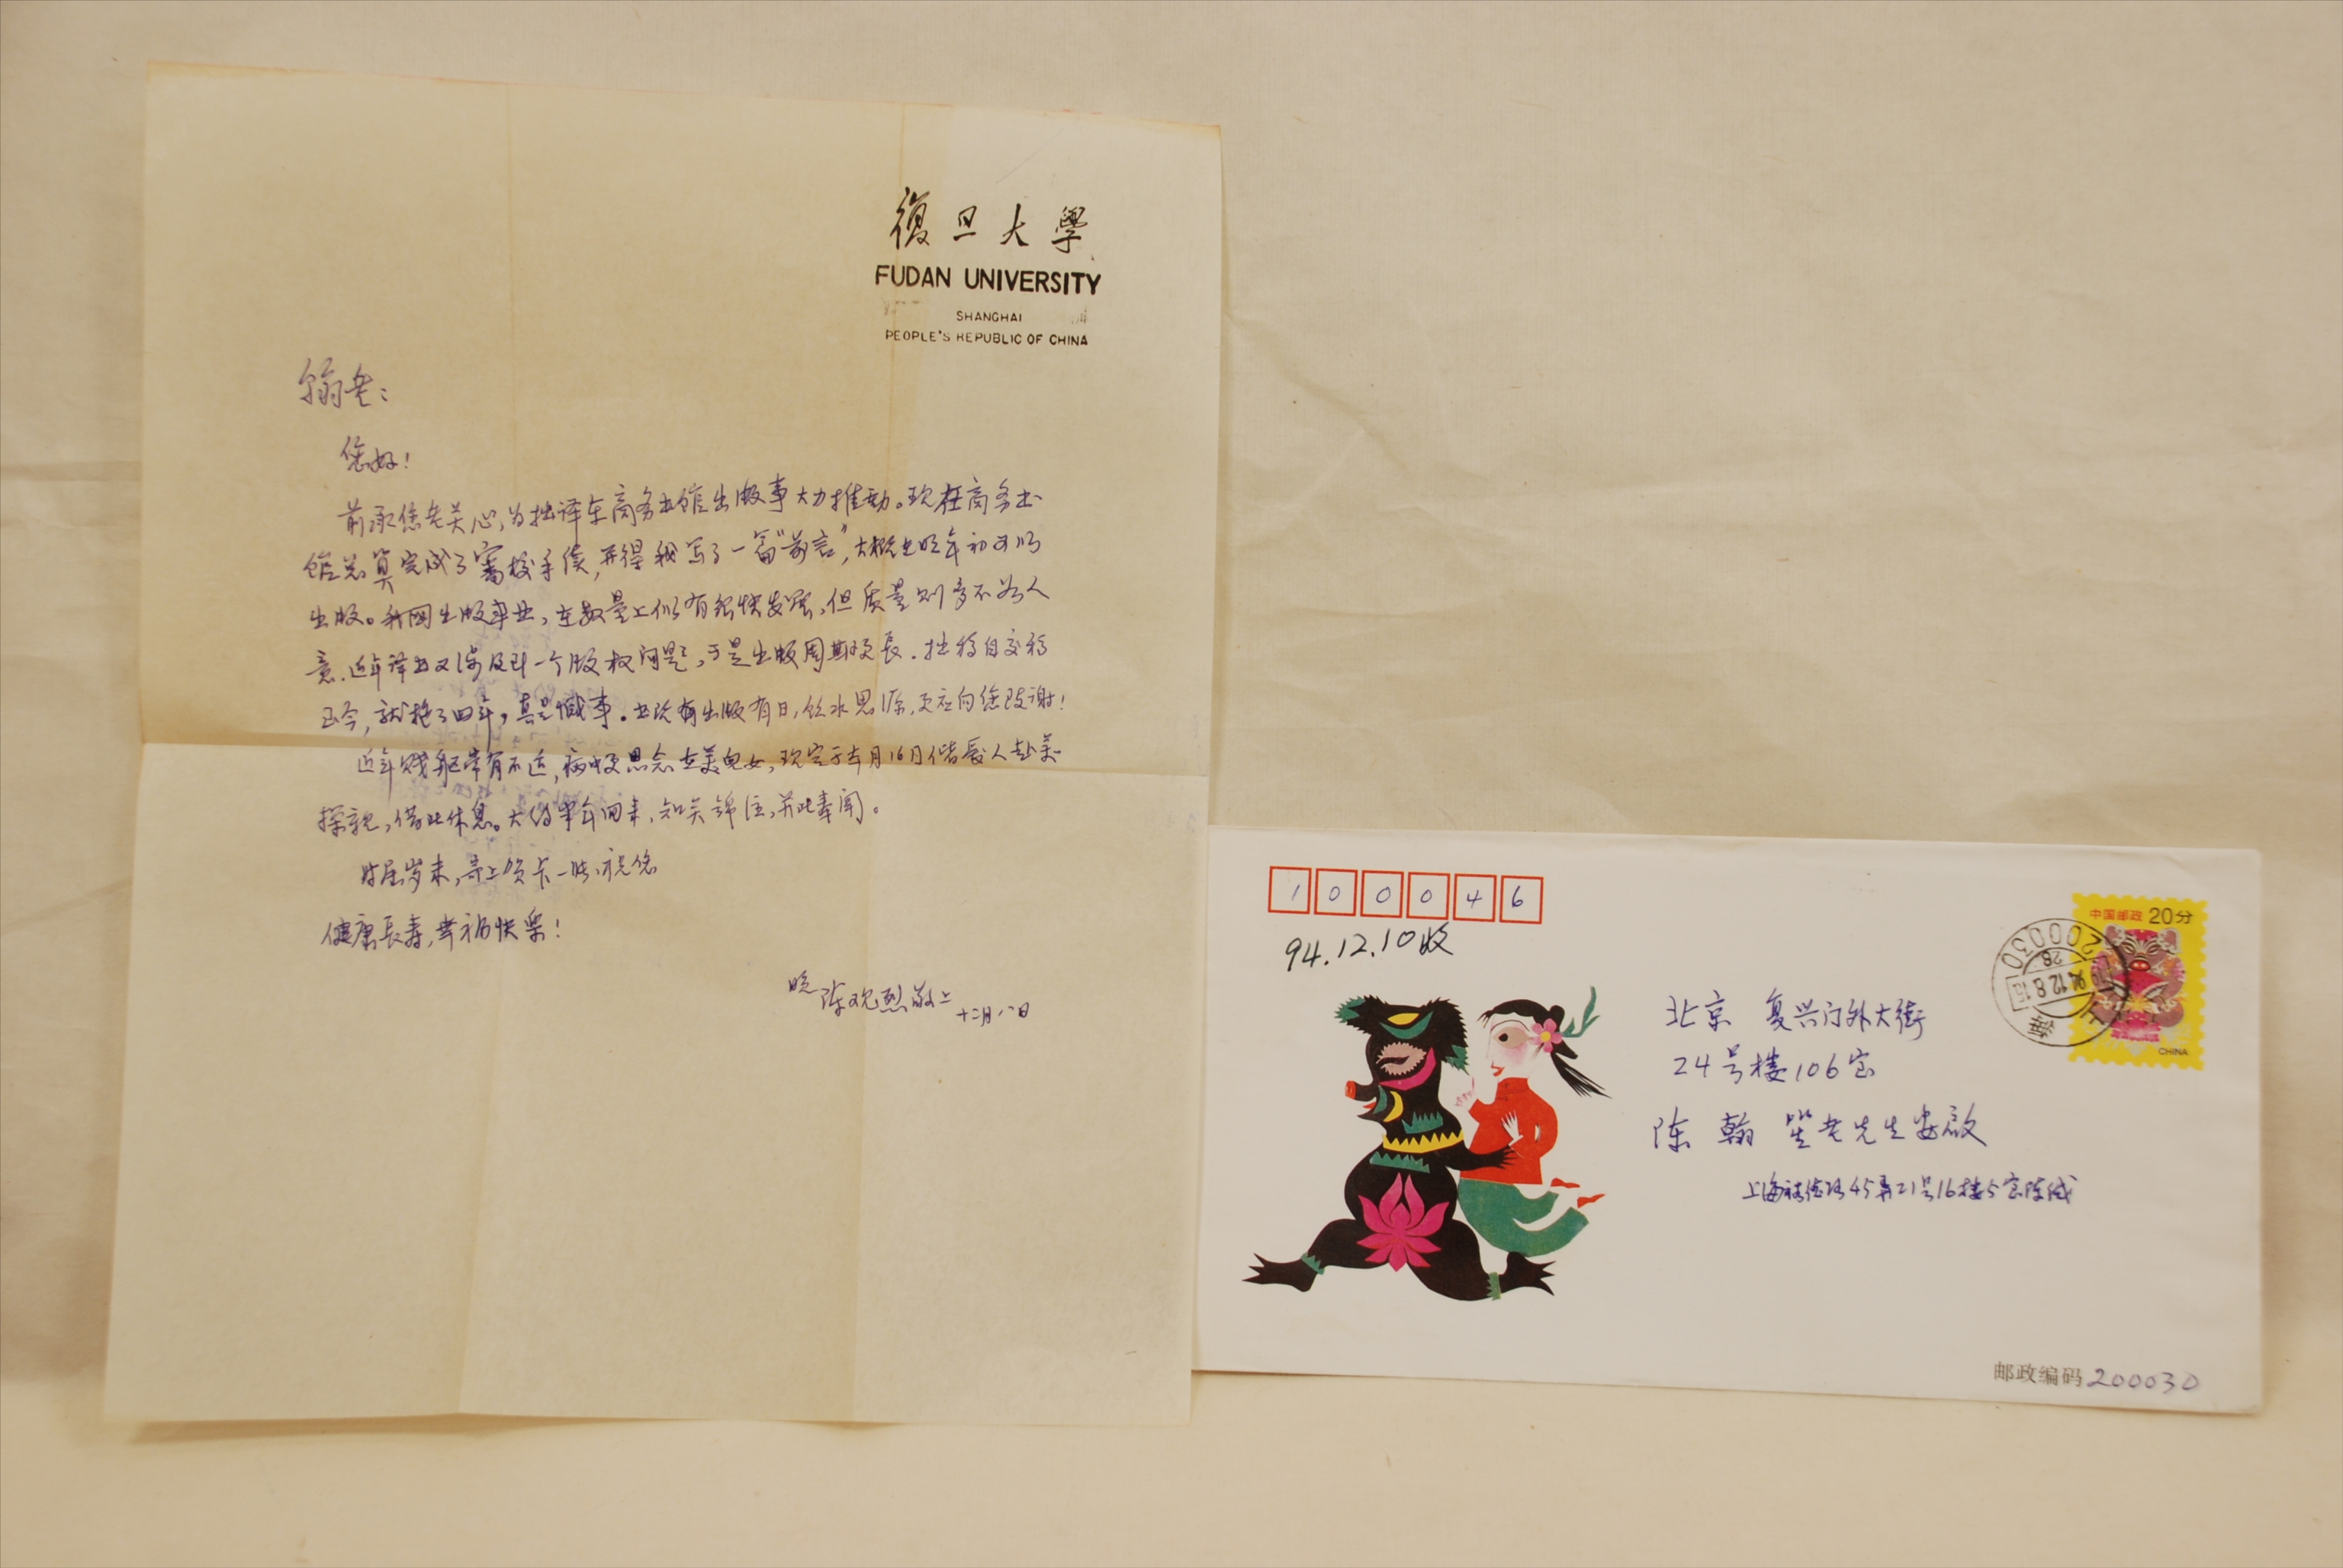 復旦大學
FUDAN UNIVERSITY
SHANGHAI
PEOPLE'S REPUBLIC OF CHINA
翰老：
您好！
前承您老关心，为拙译在商务书馆出版事大力推动。现在商务书
馆总算完成了审校手续，并得我写了一篇“前言”，大概在明年初可以
出版。我国出版事业，在数量上似有很快发展，但质量则多不如人
意。近年译书又涉及到一个版权问题，于是出版周期更长。拙稿自交稿
至今，就拖了四年，真是憾事。出版有日，饮水思源，更应向您致谢！
近年贱躯常有不适，病中更思念在美儿女，现定于本月16日偕家人赴美
探亲，借此休息。大约半年回来，知关锦注，并此奉闻。
时届岁末，寄上贺卡一张，祝您
健康长寿，幸福快乐！
晚 陈观烈敬上 十二月八日
100046
94.12.10收
中国邮政 20分
CHINA
200030
上海
北京 复兴门外大街
24号楼106室
陈翰笙老先生安启
上海 路45弄21号16楼5室陈缄
邮政编码 200030